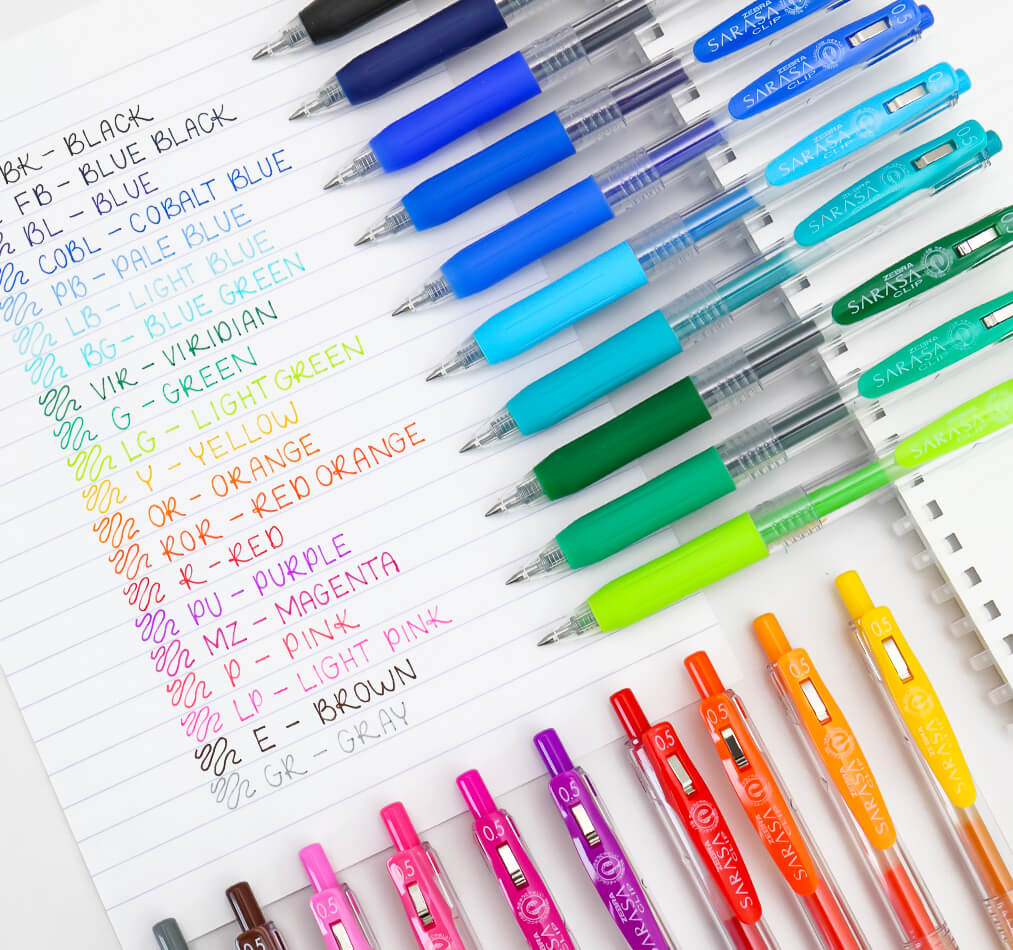 BK - BLACK
FB - BLUE BLACK
BL - BLUE
COBL - COBALT BLUE
PB - PALE BLUE
LB - LIGHT BLUE
BG - BLUE GREEN
VIR - VIRIDIAN
G - GREEN
LG - LIGHT GREEN
Y - YELLOW
OR - ORANGE
ROR - RED ORANGE
R - RED
PU - PURPLE
MZ - MAGENTA
P - PINK
LP - LIGHT PINK
E - BROWN
GR - GRAY
ZEBRA
SARASA
CLIP
0.5
ZEBRA
SARASA
CLIP
0.5
ZEBRA
SARASA
CLIP
0.5
ZEBRA
SARASA
CLIP
ZEBRA
SARASA
CLIP
ZEBRA
SARASA
CLIP
SARASA
0.5
ZEBRA
SARASA
CLIP
0.5
ZEBRA
SARASA
CLIP
0.5
ZEBRA
SARASA
CLIP
0.5
ZEBRA
SARASA
CLIP
0.5
ZEBRA
SARASA
CLIP
0.5
ZEBRA
SARASA
0.5
0.5
0.5